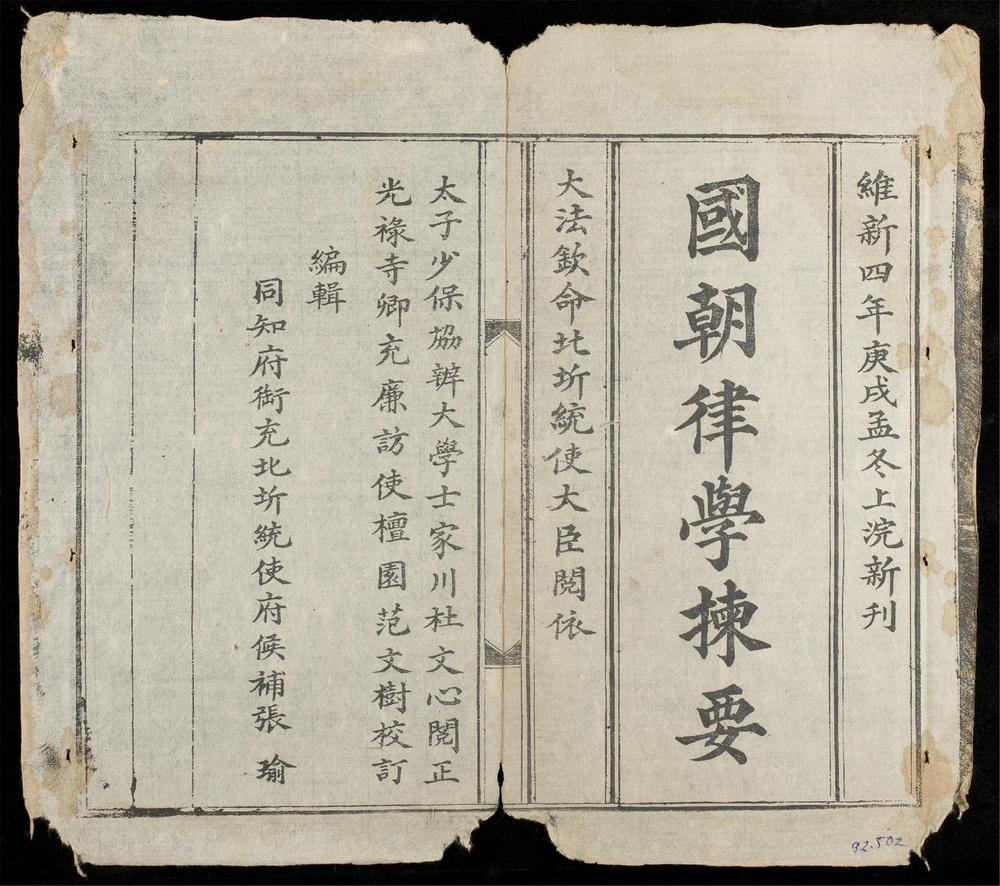 維新四年庚戌孟冬上浣新刊
國朝律學揀要
大法欽命北圻統使大臣閱依
太子少保協辦大學士家川杜文心閱正
光祿寺卿充廉訪使檀園范文樹校訂
編輯
同知府銜充北圻統使府候補張瑜
92.502